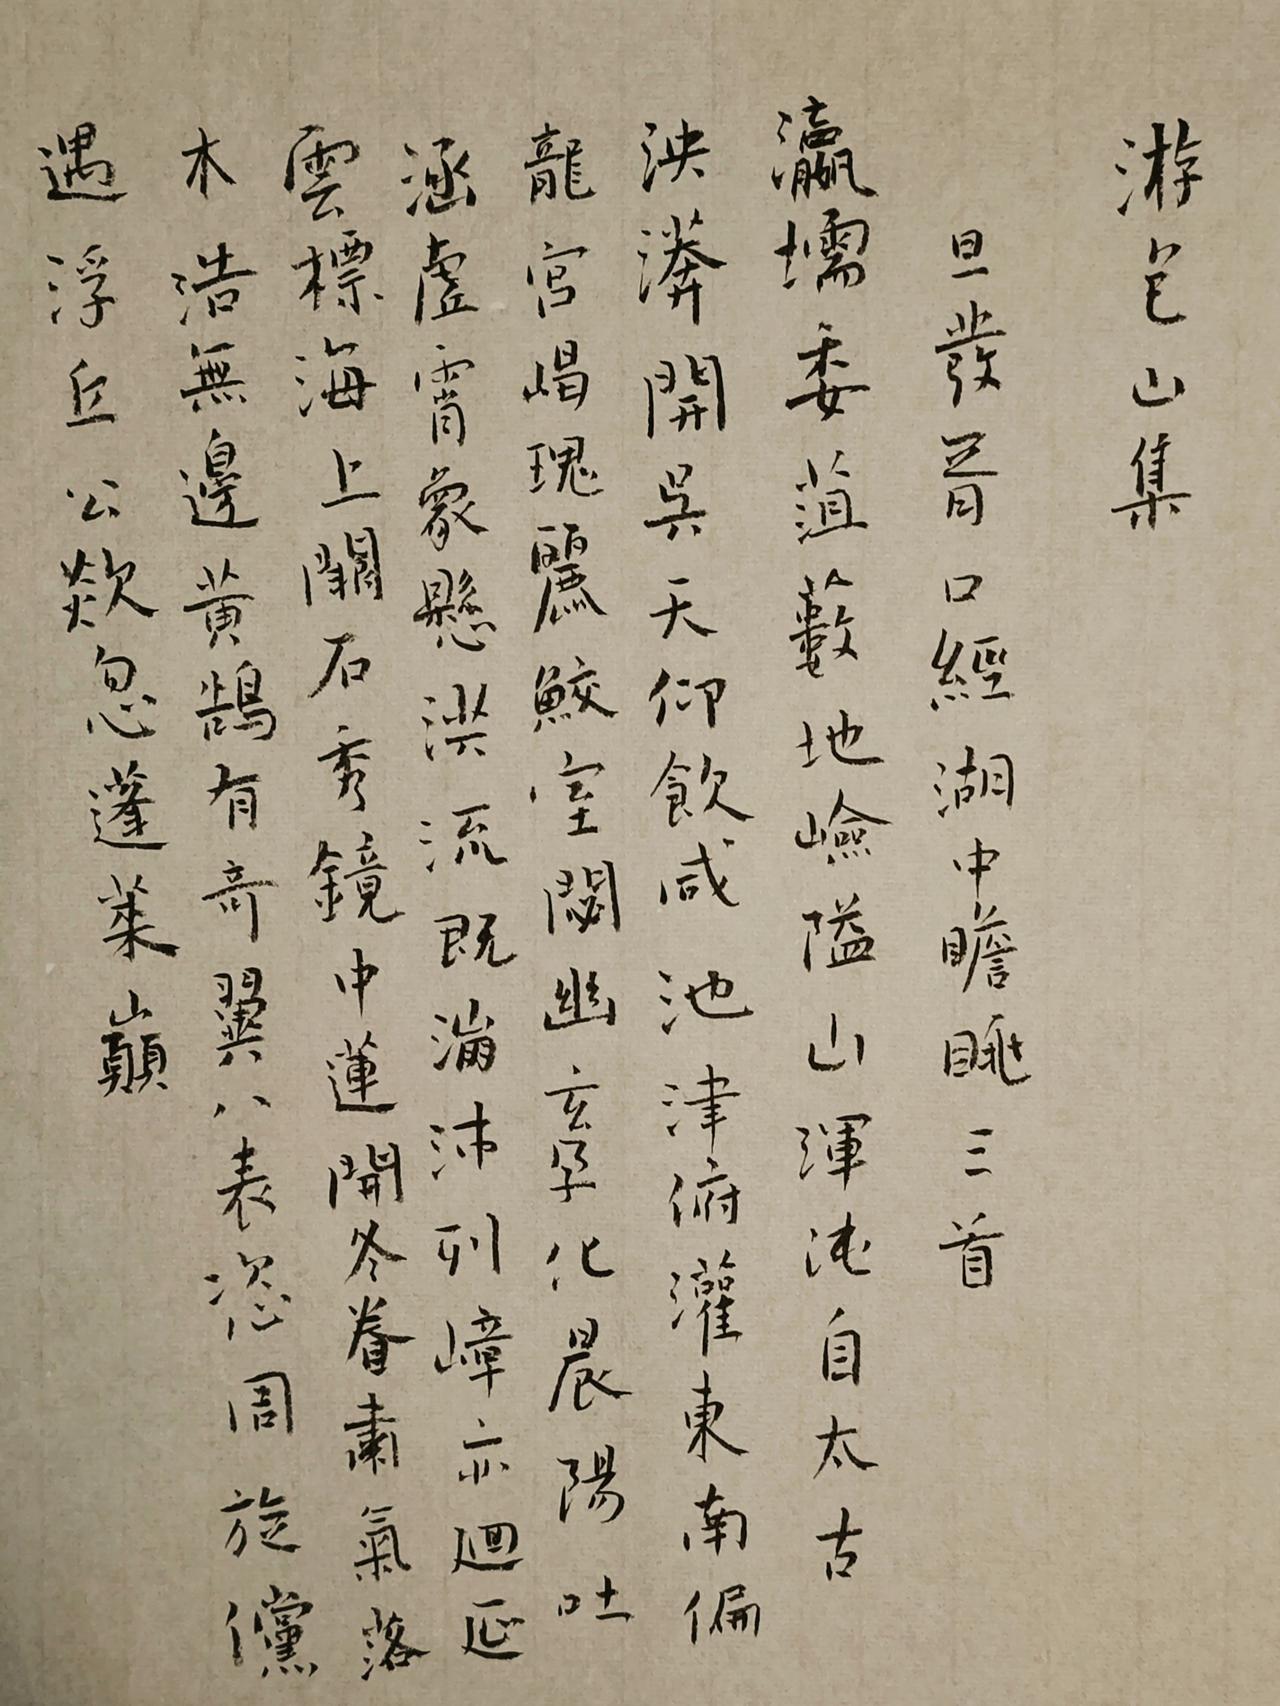 游包山集
旦發胥口經湖中瞻眺三首
瀛壖委菹藪地嶮隘山渾沌自太古
泱漭開吳天仰飲咸池津俯灌東南偏
龍宮崛瑰麗鮫室閟幽玄孕化晨陽吐
涵虛霄象懸洪流既滿沛列嶂亦迴延
雲標海上闕石秀鏡中蓮開冬眷肅氣落
木浩無邊黃鵠有奇翼八表恣周旋儻
遇浮丘公欻忽蓬萊巔